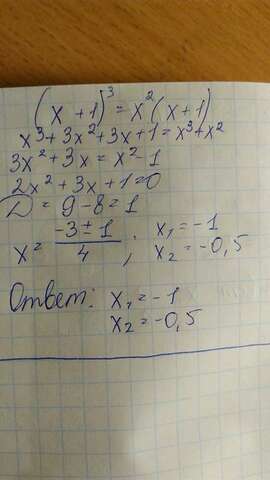 (x + 1)³ = x² (x + 1)
x³ + 3x² + 3x + 1 = x³ + x²
3x² + 3x = x² - 1
2x² + 3x + 1 = 0
D = 9 - 8 = 1
x = (-3 ± 1) / 4 ; x₁ = -1
x₂ = -0,5
Ответ: x₁ = -1
x₂ = -0,5